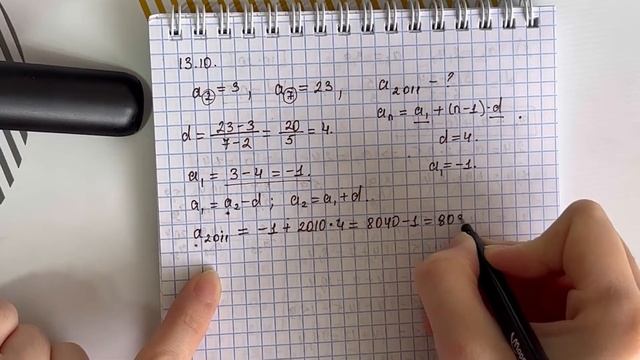 13.10.
a₂ = 3 , a₇ = 23 , a₂₀₁₁ – ?
aₙ = a₁ + (n-1)·d .
d = 23-3 / 7-2 = 20 / 5 = 4.
d = 4.
a₁ = 3 - 4 = -1.
a₁ = -1.
a₁ = a₂ - d ; a₂ = a₁ + d .
a₂₀₁₁ = -1 + 2010·4 = 8040 - 1 = 803